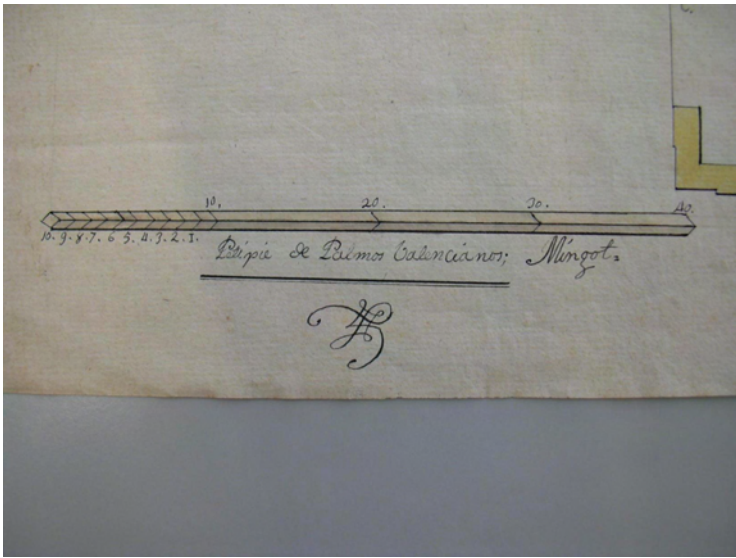 C.
10. 20. 30. 40.
10. 9. 8. 7. 6 5. 4. 3. 2. 1.
Petipié de Palmos Valencianos; Mingot=